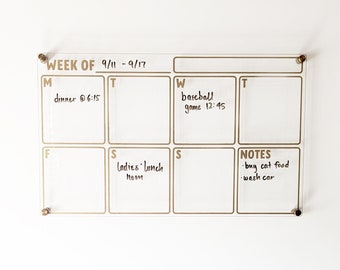 WEEK OF 9/11 - 9/17
M T W T
dinner @ 6:15
baseball
game 12:45
F S S NOTES
ladies' lunch
noon
· buy cat food
· wash car